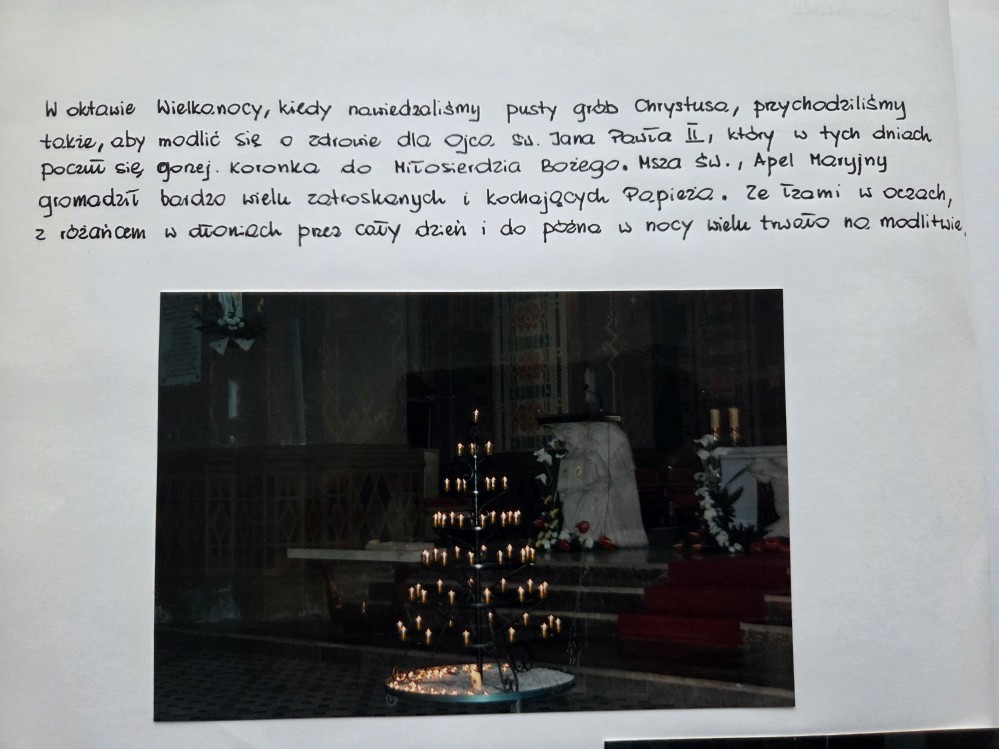 W oktawie Wielkanocy, kiedy nawiedzaliśmy pusty grób Chrystusa, przychodziliśmy
także, aby modlić się o zdrowie dla Ojca św. Jana Pawła II, który w tych dniach
poczuł się gorzej. Koronka do Miłosierdzia Bożego. Msza św., Apel Maryjny
gromadził bardzo wielu zatroskanych i kochających Papieża. Ze łzami w oczach,
z różańcem w dłoniach przez cały dzień i do późna w nocy wielu trwało na modlitwie.